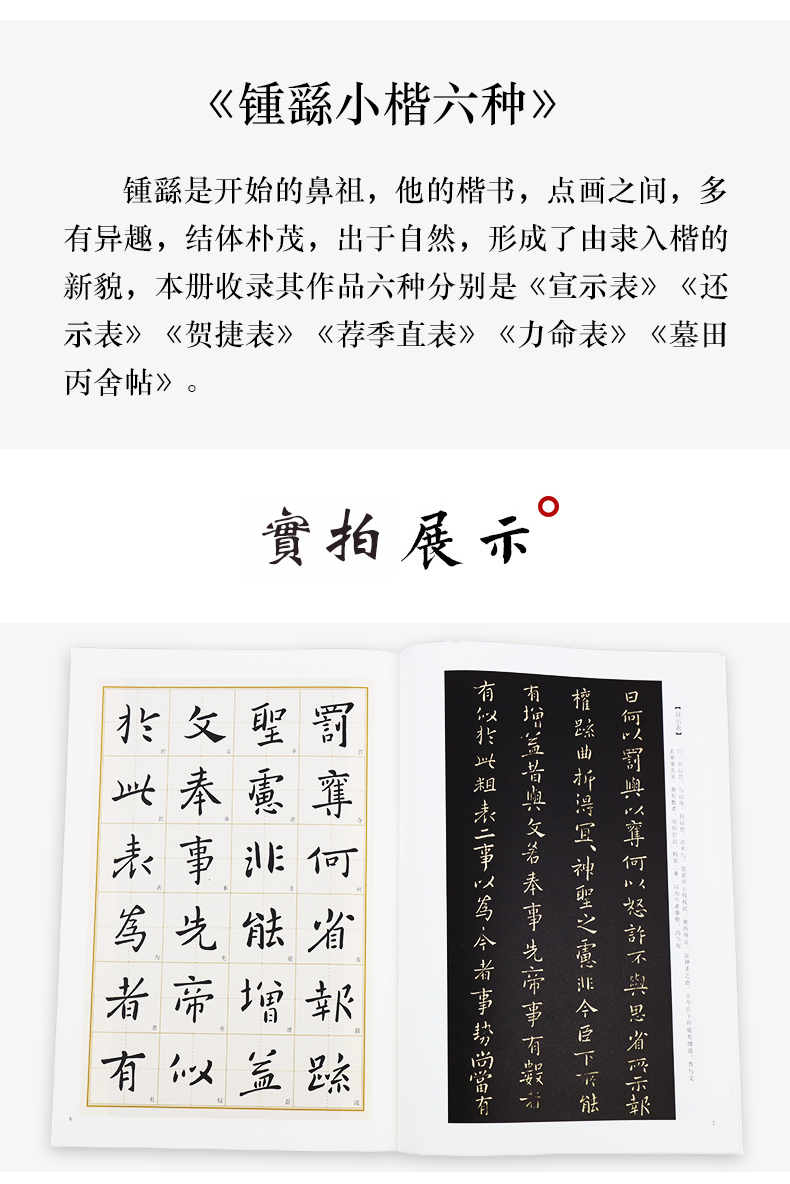 《锺繇小楷六种》
锺繇是开始的鼻祖，他的楷书，点画之间，多
有异趣，结体朴茂，出于自然，形成了由隶入楷的
新貌，本册收录其作品六种分别是《宣示表》《还
示表》《贺捷表》《荐季直表》《力命表》《墓田
丙舍帖》。
實拍展示
罰奪何省報蹤
聖慮非能增益
文奉事先帝似
於此表為者有
【宣示表】
曰何以罰與以奪何以怒許不與思省所示報
權蹤曲折得宜神聖之慮非今臣下所能
有增益昔與文若奉事先帝事有數者
有似於此粗表二事以為今者事勢尚當有